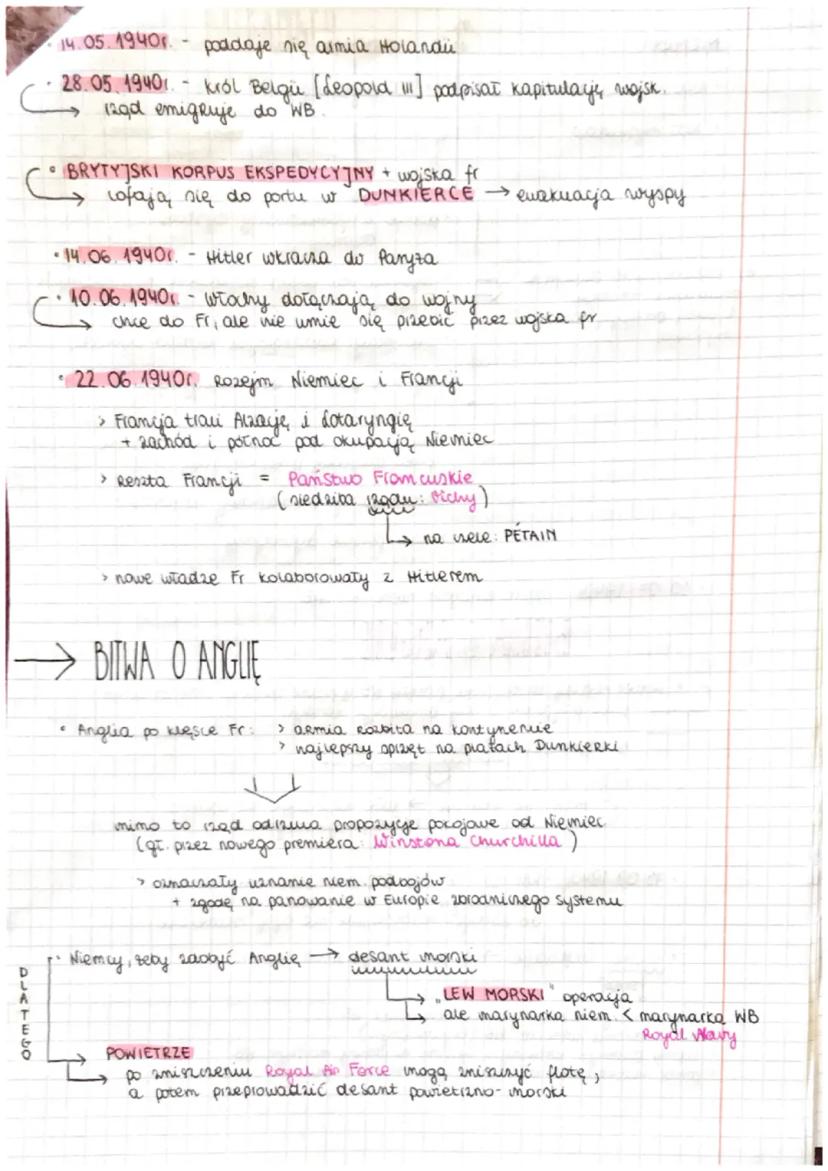 · 14.05.1940r. - poddaje się armia Holandii
· 28.05.1940r. - król Belgii [Leopold III] podpisał kapitulację wojsk.
→ rząd emigruje do WB.
• BRYTYJSKI KORPUS EKSPEDYCYJNY + wojska fr
→ cofają się do portu w DUNKIERCE → ewakuacja wyspy
• 14.06.1940r. - Hitler wkracza do Paryża
• 10.06.1940r. - Włochy dołączają do wojny
→ chce do Fr, ale nie umie się przebić przez wojska fr
• 22.06.1940r. Rozejm Niemiec i Francji
> Francja traci Alzację i Lotaryngię
+ zachód i północ pod okupacją Niemiec
> Reszta Francji = Państwo Francuskie
(siedziba rządu: Vichy)
→ na czele: PÉTAIN
> nowe władze Fr kolaborowały z Hitlerem
→ BITWA O ANGLIĘ
• Anglia po klęsce Fr: > armia rozbita na kontynencie
> najlepszy sprzęt na plażach Dunkierki
mimo to rząd odrzuca propozycje pokojowe od Niemiec
(gł. przez nowego premiera: Winstona Churchilla)
> oznaczały uznanie niem. podbojów
+ zgodę na panowanie w Europie zbrodniczego systemu
DLATEGO
• Niemcy, żeby zdobyć Anglię → desant morski
→ "LEW MORSKI" operacja
→ ale marynarka niem. < marynarka WB
Royal Navy
→ POWIETRZE
→ po zniszczeniu Royal Air Force mogą zniszczyć flotę,
a potem przeprowadzić desant powietrzno-morski